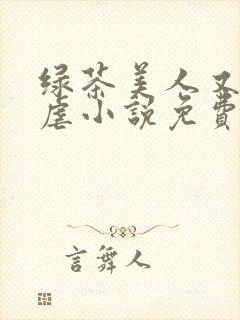 绿茶美人又
虐小說免費
言舞人